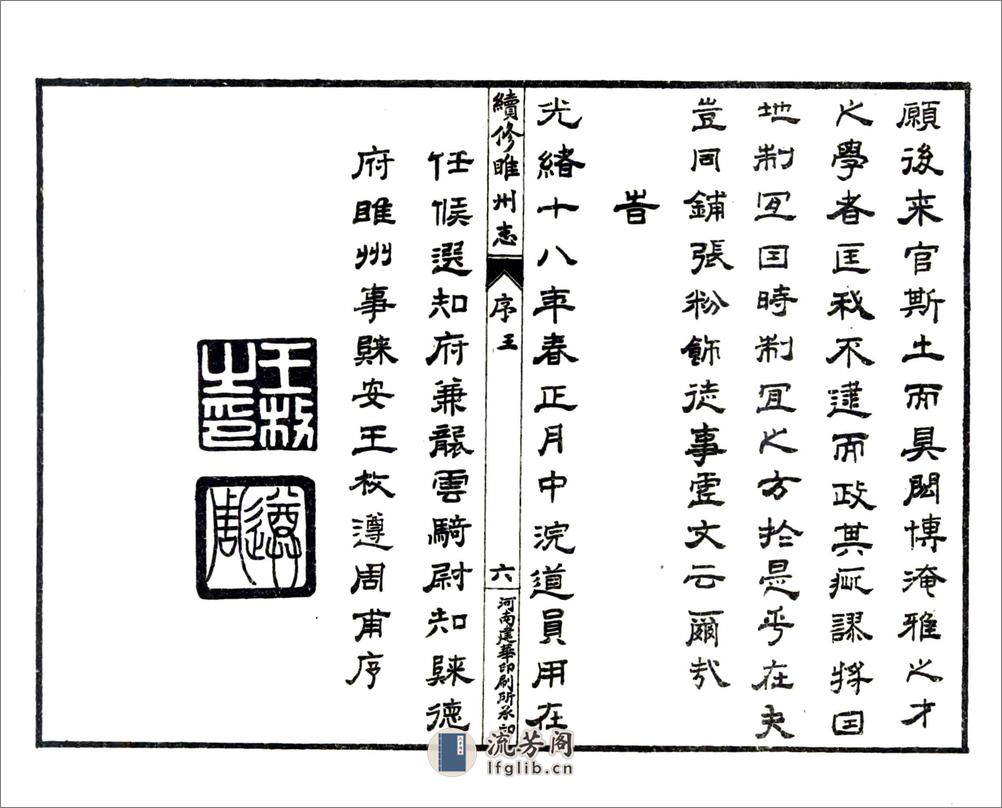 願後来官斯土而具閎博淹雅之才
之學者匡我不逮而政其疵謬将因
地制宜因時制宜之方於是乎在夫
豈同鋪張粉飾徒事虛文云爾哉
旹
光緒十八年春正月中浣道員用在
續修睢州志
序王
六
河南建華印刷所承印
任候選知府兼襲雲騎尉知歸德
府睢州事歸安王枚遵周甫序
王枚之印
遵周
流芳阁
lfglib.cn